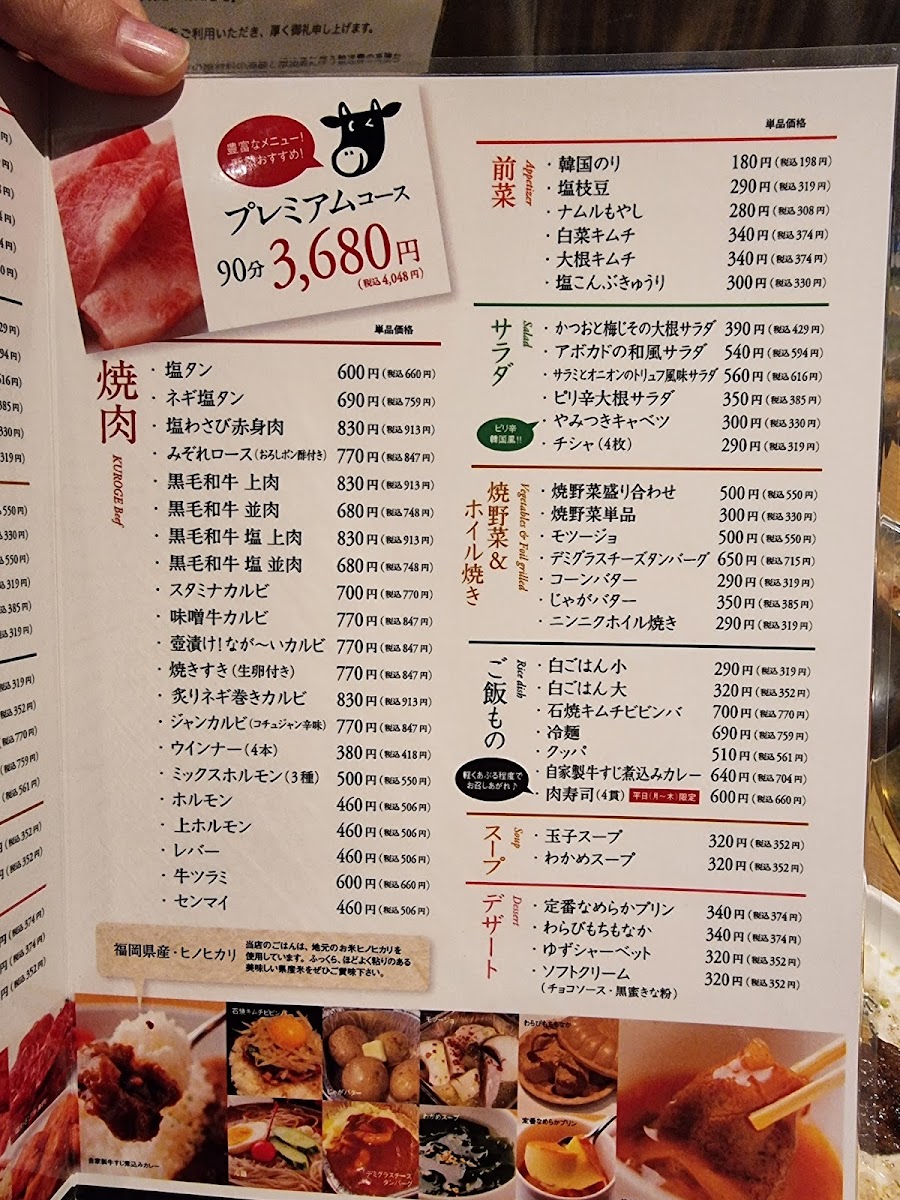 をご利用いただき、厚く御礼申し上げます。
豊富なメニュー!
おすすめ!
プレミアムコース
90分 3,680円
(税込4,048円)
単品価格
焼肉
KUROGE Beef
・塩タン 600円(税込660円)
・ネギ塩タン 690円(税込759円)
・塩わさび赤身肉 830円(税込913円)
・みぞれロース(おろしポン酢付き) 770円(税込847円)
・黒毛和牛 上肉 830円(税込913円)
・黒毛和牛 並肉 680円(税込748円)
・黒毛和牛 塩 上肉 830円(税込913円)
・黒毛和牛 塩 並肉 680円(税込748円)
・スタミナカルビ 700円(税込770円)
・味噌牛カルビ 770円(税込847円)
・壺漬け!なが〜いカルビ 770円(税込847円)
・焼きすき(生卵付き) 770円(税込847円)
・炙りネギ巻きカルビ 830円(税込913円)
・ジャンカルビ(コチュジャン辛味) 770円(税込847円)
・ウインナー(4本) 380円(税込418円)
・ミックスホルモン(3種) 500円(税込550円)
・ホルモン 460円(税込506円)
・上ホルモン 460円(税込506円)
・レバー 460円(税込506円)
・牛ツラミ 600円(税込660円)
・センマイ 460円(税込506円)
福岡県産・ヒノヒカリ
当店のごはんは、地元のお米ヒノヒカリを
使用しています。ふっくら、ほどよく粘りのある
美味しい県産米をぜひご賞味下さい。
単品価格
前菜
Appetizer
・韓国のり 180円(税込198円)
・塩枝豆 290円(税込319円)
・ナムルもやし 280円(税込308円)
・白菜キムチ 340円(税込374円)
・大根キムチ 340円(税込374円)
・塩こんぶきゅうり 300円(税込330円)
サラダ
Salad
・かつおと梅じその大根サラダ 390円(税込429円)
・アボカドの和風サラダ 540円(税込594円)
・サラミとオニオンのトリュフ風味サラダ 560円(税込616円)
・ピリ辛大根サラダ 350円(税込385円)
・やみつきキャベツ 300円(税込330円)
・チシャ(4枚) 290円(税込319円)
ピリ辛
韓国風!!
焼野菜&
ホイル焼き
Vegetables & Foil grilled
・焼野菜盛り合わせ 500円(税込550円)
・焼野菜単品 300円(税込330円)
・モツージョ 500円(税込550円)
・デミグラスチーズタンバーグ 650円(税込715円)
・コーンバター 290円(税込319円)
・じゃがバター 350円(税込385円)
・ニンニクホイル焼き 290円(税込319円)
ご飯もの
Rice dish
・白ごはん 小 290円(税込319円)
・白ごはん 大 320円(税込352円)
・石焼キムチビビンバ 700円(税込770円)
・冷麺 690円(税込759円)
・クッパ 510円(税込561円)
・自家製牛すじ煮込みカレー 640円(税込704円)
・肉寿司(4貫) 平日(月〜木)限定 600円(税込660円)
軽くあぶる程度で
お召しあがれ♪
スープ
Soup
・玉子スープ 320円(税込352円)
・わかめスープ 320円(税込352円)
デザート
Dessert
・定番なめらかプリン 340円(税込374円)
・わらびもちもなか 340円(税込374円)
・ゆずシャーベット 320円(税込352円)
・ソフトクリーム 320円(税込352円)
(チョコソース・黒蜜きな粉)
自家製牛すじ煮込みカレー
石焼キムチビビンバ
じゃがバター
モツージョ
わらびもちもなか
デミグラスチーズ
タンバーグ
わかめスープ
定番なめらかプリン